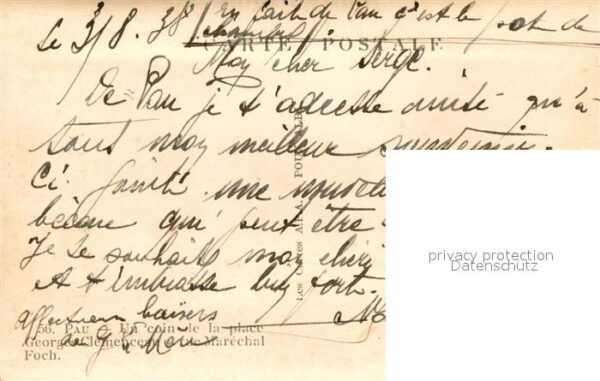 En fait de Pau c'est le pot de
chambre
Le 3/8. 38
CARTE POSTALE
Mon cher Serge.
De Pau je t'adresse ainsi qu'à
tous mon meilleur souvenir.
Ci joint une
bécane qui peut être
Je le souhaite mon chéri
et t'embrasse bien fort.
Affectueux baisers
de
56. PAU — Un coin de la place
Georges Clemenceau et rue Maréchal
Foch.
LES CARTES A.P.A. POUX
privacy protection
Datenschutz